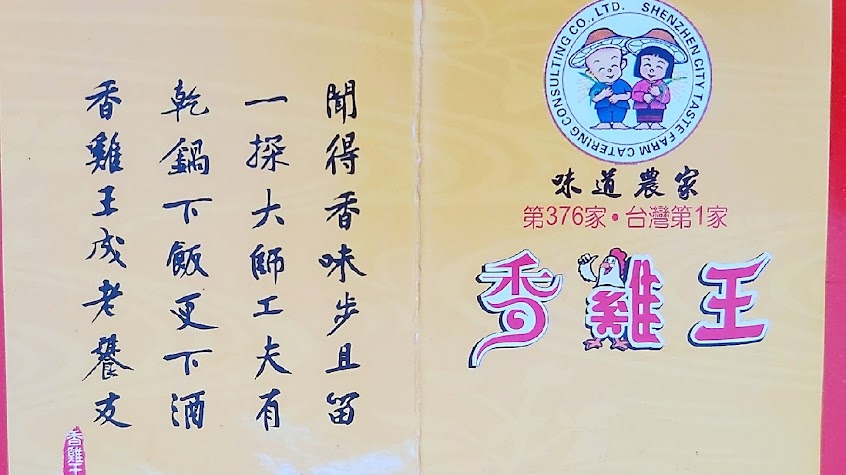 聞得香味步且留
一探大師工夫有
乾鍋下飯更下酒
香雞王成老饕友
香雞王
SHENZHEN CITY TASTE FARM CATERING CONSULTING CO., LTD.
味道農家
第376家·台灣第1家
香雞王